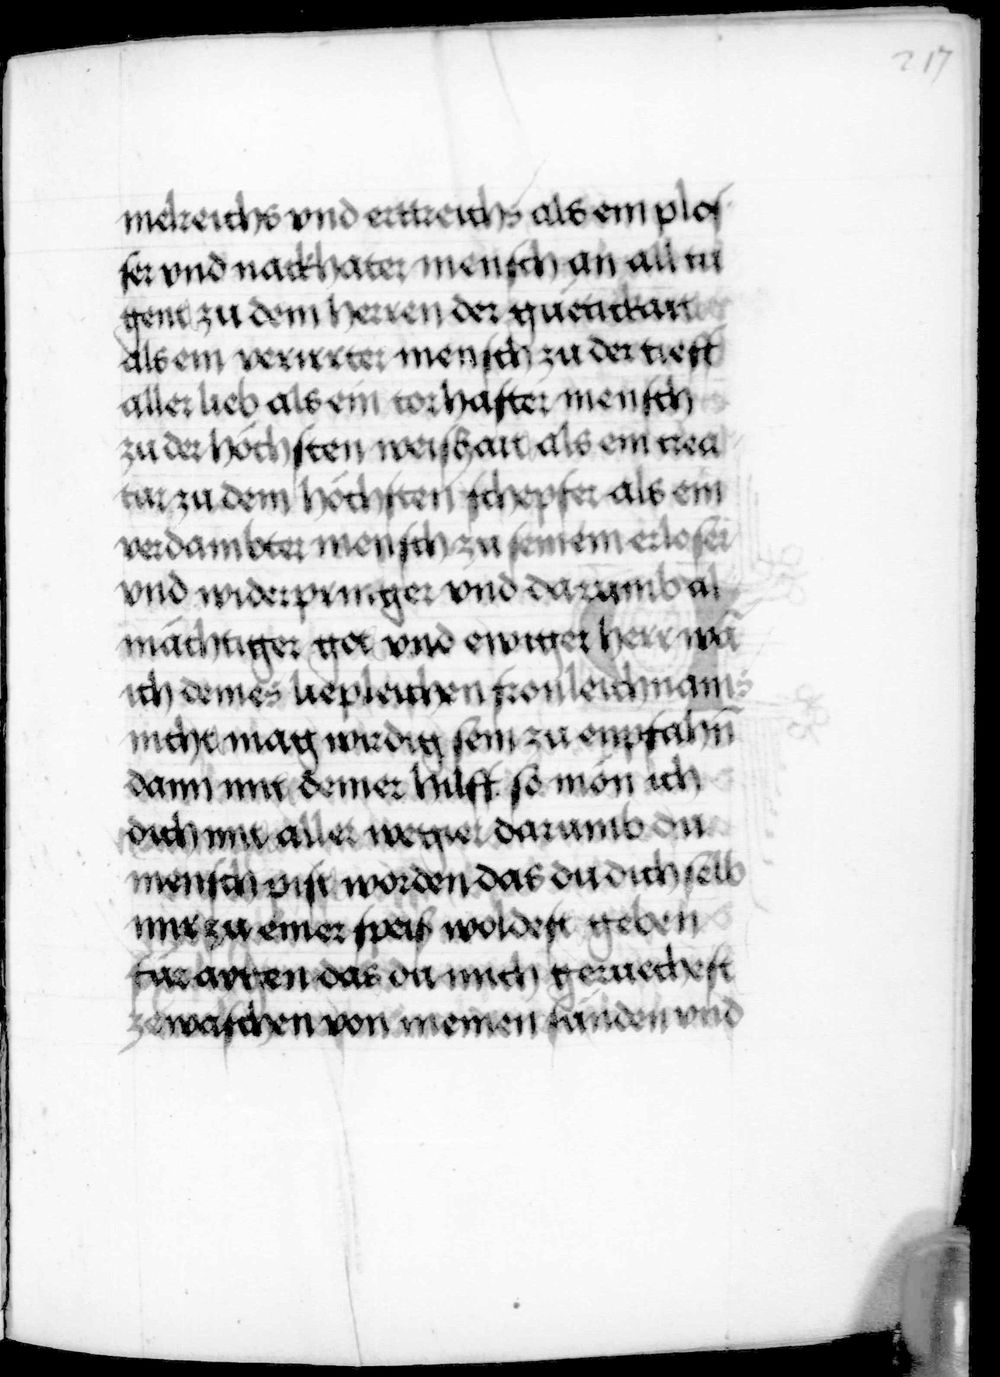 217
melreichs vnd erttreichs als ein plos
ser vnd nackhater mensch an all tu
gent zu dem herren der guetickait
als ein verirrter mensch zu der tieff
aller lieb als ein torhafter mensch
zu der höchsten weishait als ein crea
tur zu dem höchsten schepfer als ein
verdambter mensch zu seinem erloser
vnd widerpringer vnd darumb al
mächtiger got vnd ewiger herr wā
ich deines liepleichen fronleichnams
nicht mag wirdig sein zu enpfahn̄
dann mit deiner hilff so mon ich
dich mit aller wegier darumb du
mensch pist worden das du dich selb
mir zu einer speis woldest geben
für das du mich geruechest
zewaschen von meinen sünden vnd